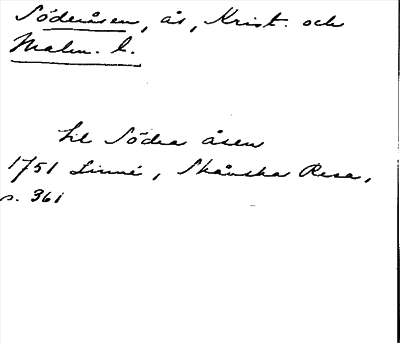 Söderåsen, ås, Krist. och
Malm. l.
till Södra åsen
1751 Linné, Skånska Resa,
s. 361